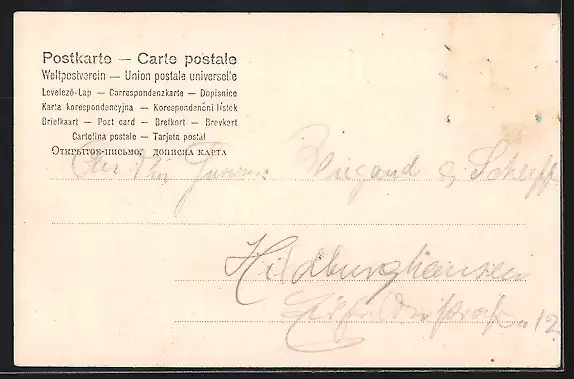 Postkarte — Carte postale
Weltpostverein — Union postale universelle
Levelező-Lap — Correspondenzkarte — Dopisnice
Karta korespondencyjna — Korespondenční lístek
Briefkaart — Post card — Brefkort — Brevkort
Cartolina postale — Tarjeta postal
Открытое-письмо, дописна карта
An die Firma: Wiegand & Scheff
Hildburghausen
12